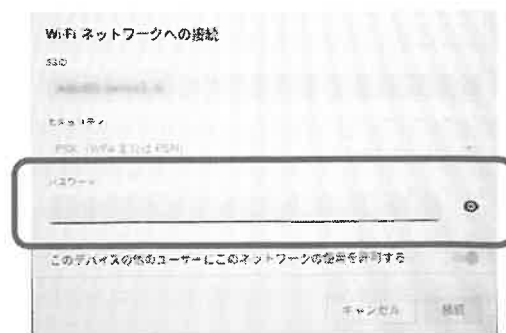 Wi-Fi ネットワークへの接続
SSID
セキュリティ
PSK (WPA または RSN)
パスワード
このデバイスの他のユーザーにこのネットワークの使用を許可する
キャンセル 接続